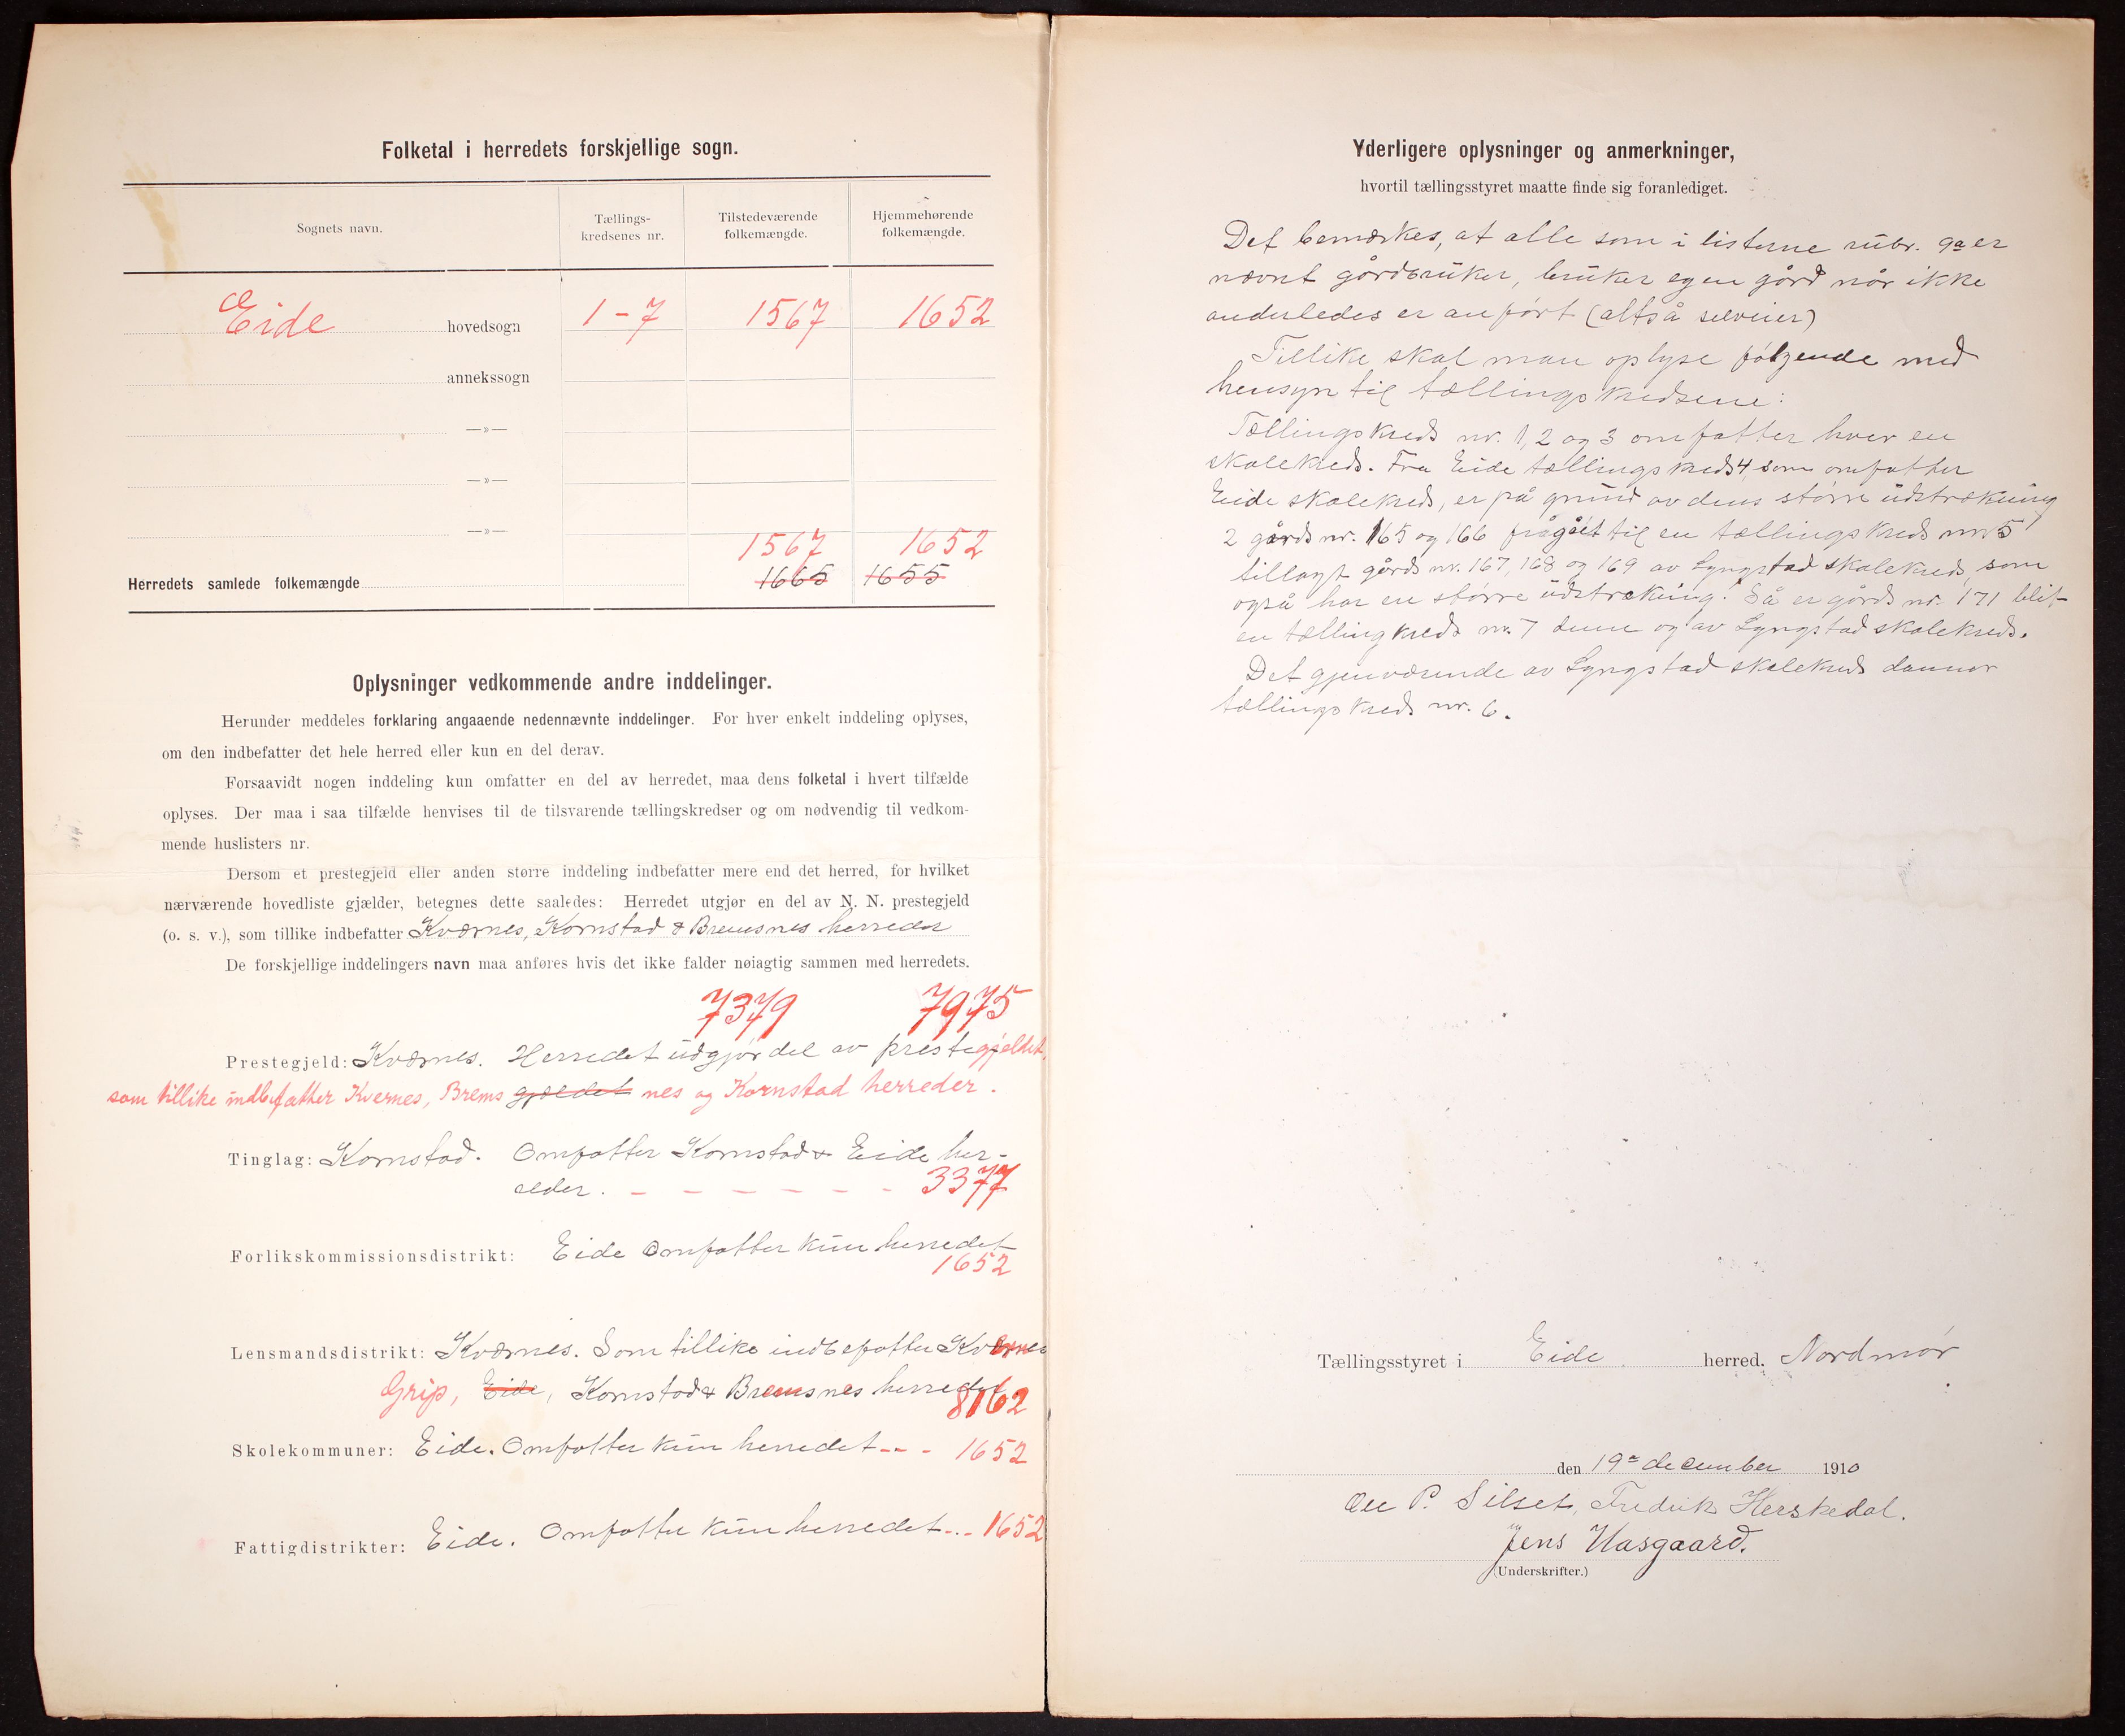 Folketal i herredets forskjellige sogn.
Sognets navn.
Tællings-
kredsenes nr.
Tilstedeværende
folkemængde.
Hjemmehørende
folkemængde.
Eide hovedsogn 1-7 1567 1652
annekssogn
—»—
—»—
—»—
1567 1652
Herredets samlede folkemængde 1665 1655
Oplysninger vedkommende andre inddelinger.
Herunder meddeles forklaring angaaende nedennævnte inddelinger. For hver enkelt inddeling oplyses,
om den indbefatter det hele herred eller kun en del derav.
Forsaavidt nogen inddeling kun omfatter en del av herredet, maa dens folketal i hvert tilfælde
oplyses. Der maa i saa tilfælde henvises til de tilsvarende tællingskredser og om nødvendig til vedkom-
mende huslisters nr.
Dersom et prestegjeld eller anden større inddeling indbefatter mere end det herred, for hvilket
nærværende hovedliste gjælder, betegnes dette saaledes: Herredet utgjør en del av N. N. prestegjeld
(o. s. v.), som tillike indbefatter Kværnes, Kornstad & Bremsnes herreder
De forskjellige inddelingers navn maa anføres hvis det ikke falder nøiagtig sammen med herredets.
7379 7975
Prestegjeld: Kværnes. Herredet udgjør del av prestegjeldet,
som tillike indbefatter Kvernes, Brems gjeldet nes og Kornstad herreder.
Tinglag: Kornstad. Omfatter Kornstad & Eide her-
reder. - - - - - - - 3377
Forlikskommissionsdistrikt: Eide Omfatter kun herredet
1652
Lensmandsdistrikt: Kværnes. Som tillike indbefatter Kvernes
Grip, Eide, Kornstad & Bremsnes herreder 8162
Skolekommuner: Eide. Omfatter kun herredet - - - 1652
Fattigdistrikter: Eide. Omfatter kun herredet - - - 1652
Yderligere oplysninger og anmerkninger,
hvortil tællingsstyret maatte finde sig foranlediget.
Det bemærkes, at alle som i listerne rubr. 9a er
nævnt gårdbruker, bruker egen gård når ikke
anderledes er anført (altså selveier)
Tillike skal man oplyse følgende med
hensyn til tællingskredsene:
Tællingskreds nr. 1, 2 og 3 omfatter hver en
skolekreds. Fra Eide tællingskreds 4, som omfatter
Eide skolekreds, er på grund av dens større udstrækning
2 gårds nr. 165 og 166 fragåt til en tællingskreds nr. 5
tillagt gårds nr. 167, 168 og 169 av Lyngstad skolekreds, som
også har en større udstrekning. Så er gårds nr. 171 blit
en tællingkreds nr. 7 denne og av Lyngstad skolekreds.
Det gjenværende av Lyngstad skolekreds danner
tællingskreds nr. 6.
Tællingsstyret i Eide herred. Nordmør
den 19de december 1910
Ole P. Silset, Fredrik Herskedal.
Jens Hasgaard.
(Underskrifter.)